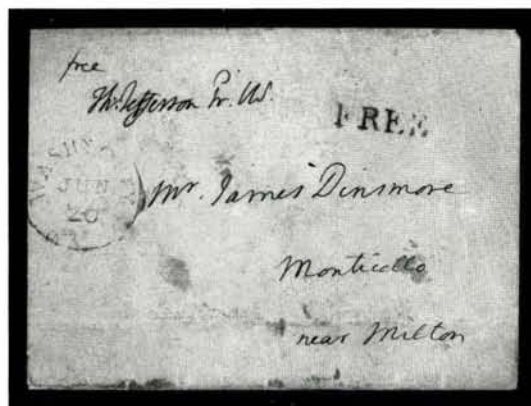 free
Th: Jefferson Pr. US.
FREE
JUN
20
Mr. James Dinsmore
Monticello
near Milton